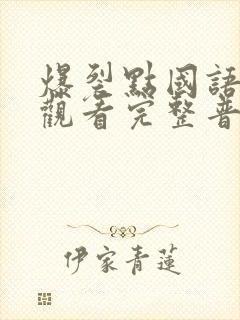 爆裂點國語
觀看完整普
伊家青蓮